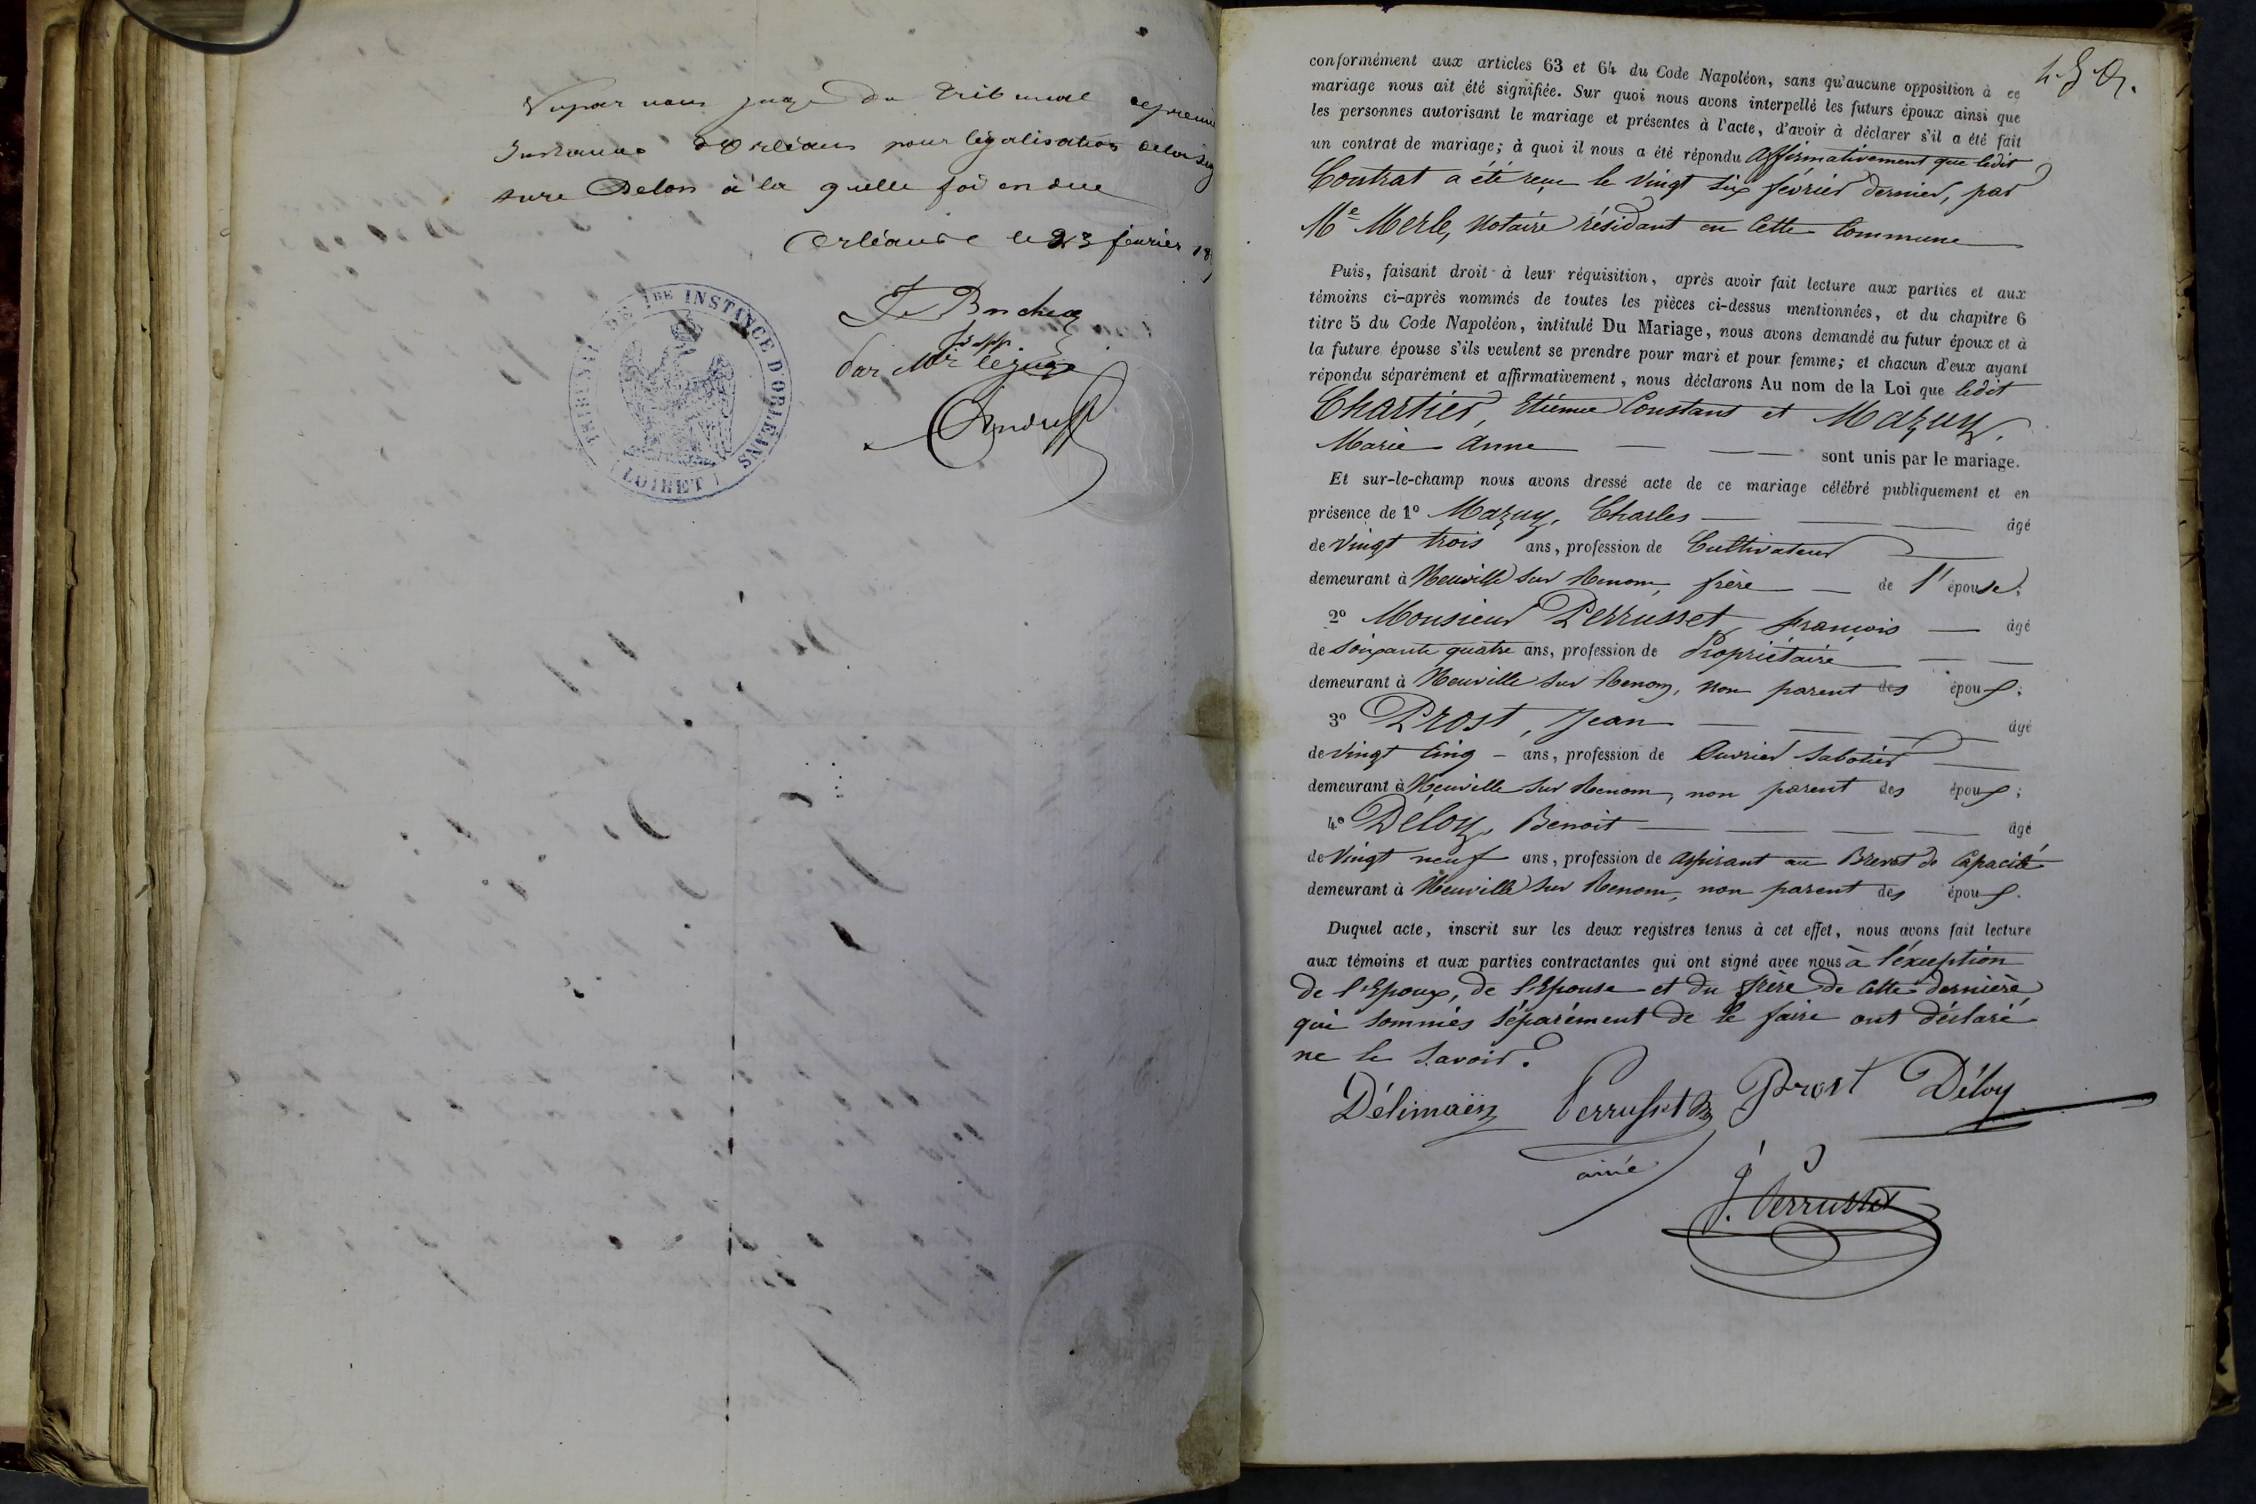 Vu par nous juge du Tribunal de premiere
Instance d'Orléans pour légalisation de la signa
ture Delon à la quelle foi est due
Orléans le 23 février 18
par Mr le juge
TRIBUNAL DE 1RE INSTANCE D'ORLÉANS
LOIRET
conformément aux articles 63 et 64 du Code Napoléon, sans qu'aucune opposition à ce
mariage nous ait été signifiée. Sur quoi nous avons interpellé les futurs époux ainsi que
les personnes autorisant le mariage et présentes à l'acte, d'avoir à déclarer s'il a été fait
un contrat de mariage; à quoi il nous a été répondu affirmativement que ledit
Contrat a été reçu le vingt six février dernier, par
Me Merle, Notaire résidant en cette Commune
Puis, faisant droit à leur réquisition, après avoir fait lecture aux parties et aux
témoins ci-après nommés de toutes les pièces ci-dessus mentionnées, et du chapitre 6
titre 5 du Code Napoléon, intitulé Du Mariage, nous avons demandé au futur époux et à
la future épouse s'ils veulent se prendre pour mari et pour femme; et chacun d'eux ayant
répondu séparément et affirmativement, nous déclarons Au nom de la Loi que ledit
Chartier, Etienne Constant et Mazuy,
Marie Anne — — — sont unis par le mariage.
Et sur-le-champ nous avons dressé acte de ce mariage célébré publiquement et en
présence de 1o Mazuy, Charles — — — âgé
de vingt trois ans, profession de Cultivateur
demeurant à Neuville sur Renom, frère — de l'épouse;
2o Monsieur Perrusset françois — âgé
de soixante quatre ans, profession de Propriétaire — —
demeurant à Neuville sur Renom, non parent des époux;
3o Prost, Jean — — — âgé
de vingt cinq — ans, profession de Ouvrier Sabotier
demeurant à Neuville sur Renom, non parent des époux;
4o Déloy, Benoit — — — — âgé
de vingt neuf ans, profession de aspirant au Brevet de Capacité
demeurant à Neuville sur Renom, non parent des époux.
Duquel acte, inscrit sur les deux registres tenus à cet effet, nous avons fait lecture
aux témoins et aux parties contractantes qui ont signé avec nous à l'éxception
de l'Epoux, de l'Epouse et du frère de cette dernière
qui sommés séparément de le faire ont déclaré
ne le savoir.
Délimaën Perrusset Prost Déloy
ainé
J. Perrusset